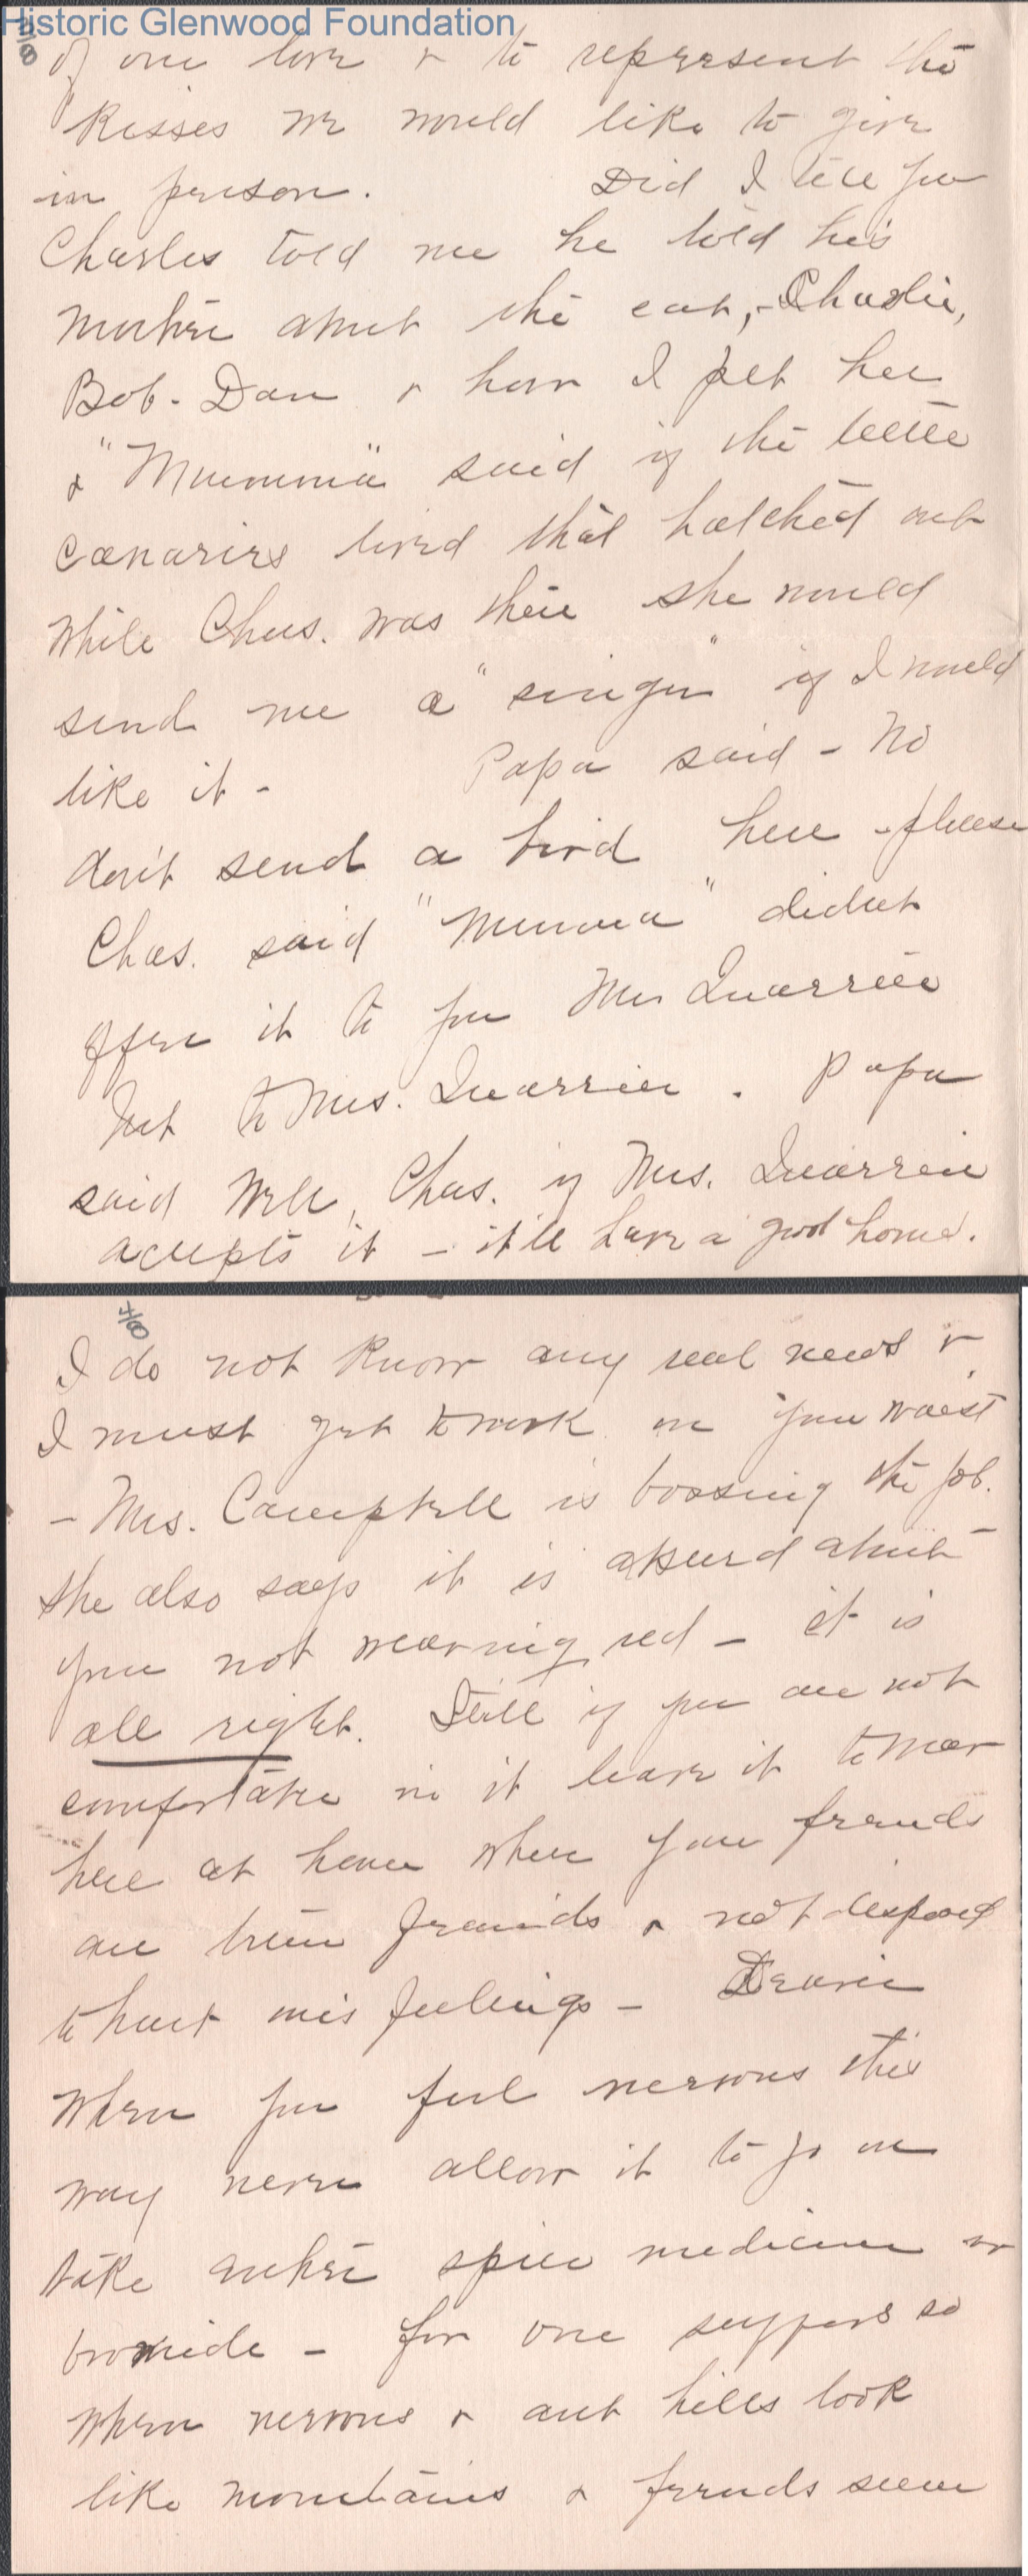 Historic Glenwood Foundation
3/8
of our love & to represent the
kisses we would like to give
in person. Did I tell you
Charles told me he told his
mother about the cat, - Charlie,
Bob - Dan & how I pet her
& "Mumma" said if the little
canaries lived that hatched out
while Chas. was there she would
send me a "singer" if I would
like it - Papa said - No
don't send a bird here - please
Chas. said "Mumma" didnt
offer it to you Mr Quarrier
but to Mrs. Quarrier. Papa
said Well, Chas. if Mrs. Quarrier
accepts it - it'll have a good home.
4/8
I do not know any real news &
I must get to work on your waist
- Mrs. Campbell is bossing the job.
She also says it is absurd about
you not wearing red - it is
all right. Still if you are not
comfortable in it leave it to wear
here at home where your friends
are true friends & not disposed
to hurt ones feelings - Dearie
when you feel nervous this
way never allow it to go on
take another spice medicine or
bromide - for one suffers so
when nervous & ant hills look
like mountains & friends seem